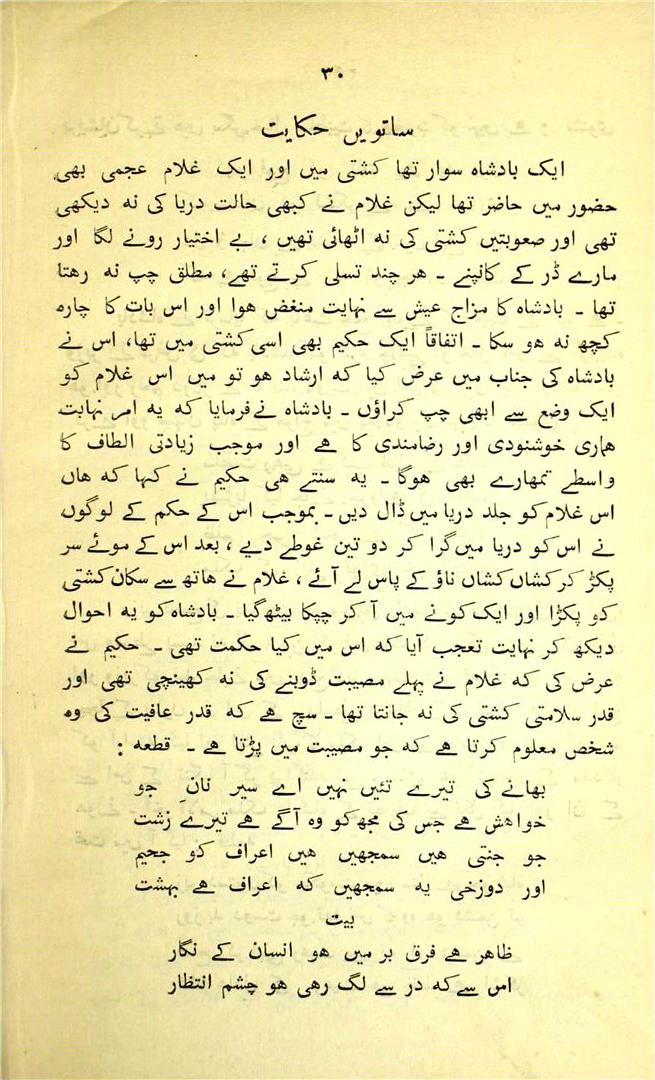 ۳۰
ساتویں حکایت
ایک بادشاہ سوار تھا کشتی میں اور ایک غلام عجمی بھی
حضور میں حاضر تھا لیکن غلام نے کبھی حالت دریا کی نہ دیکھی
تھی اور صعوبتیں کشتی کی نہ اٹھائی تھیں ، بے اختیار رونے لگا اور
مارے ڈر کے کانپنے ۔ ہر چند تسلی کرتے تھے، مطلق چپ نہ رہتا
تھا ۔ بادشاہ کا مزاج عیش سے نہایت منغض ہوا اور اس بات کا چارہ
کچھ نہ ہو سکا ۔ اتفاقاً ایک حکیم بھی اسی کشتی میں تھا، اس نے
بادشاہ کی جناب میں عرض کیا کہ ارشاد ہو تو میں اس غلام کو
ایک وضع سے ابھی چپ کراؤں ۔ بادشاہ نے فرمایا کہ یہ امر نہایت
ہماری خوشنودی اور رضامندی کا ہے اور موجب زیادتی الطاف کا
واسطے تمھارے بھی ہوگا ۔ یہ سنتے ہی حکیم نے کہا کہ ہاں
اس غلام کو جلد دریا میں ڈال دیں ۔ بموجب اس کے حکم کے لوگوں
نے اس کو دریا میں گرا کر دو تین غوطے دیے ، بعد اس کے موئے سر
پکڑ کر کشاں کشاں ناؤ کے پاس لے آئے ، غلام نے ہاتھ سے سکان کشتی
کو پکڑا اور ایک کونے میں آ کر چپکا بیٹھ گیا ۔ بادشاہ کو یہ احوال
دیکھ کر نہایت تعجب آیا کہ اس میں کیا حکمت تھی ۔ حکیم نے
عرض کی کہ غلام نے پہلے مصیبت ڈوبنے کی نہ کھینچی تھی اور
قدر سلامتی کشتی کی نہ جانتا تھا ۔ سچ ہے کہ قدر عافیت کی وہ
شخص معلوم کرتا ہے کہ جو مصیبت میں پڑتا ہے ۔ قطعہ :
بھانے کی تیرے تئیں نہیں اے سیر نانِ جو
خواہش ہے جس کی مجھ کو وہ آگے ہے تیرے زشت
جو جنتی ہیں سمجھیں ہیں اعراف کو جحیم
اور دوزخی یہ سمجھیں کہ اعراف ہے بہشت
بیت
ظاہر ہے فرق بر میں ہو انسان کے نگار
اس سے کہ در سے لگ رہی ہو چشم انتظار